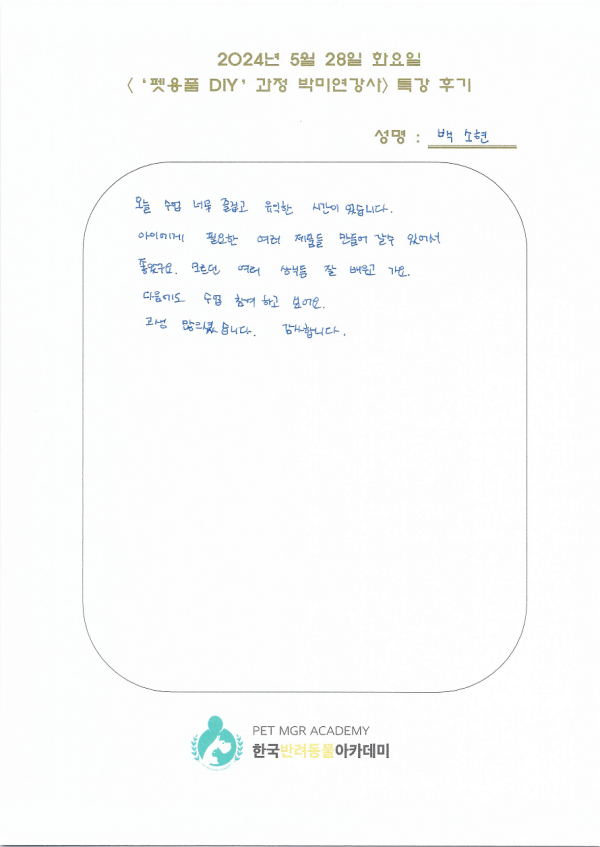 2024년 5월 28일 화요일
< '펫용품 DIY' 과정 박미연강사> 특강 후기
성명 : 백 소현
오늘 수업 너무 즐겁고 유익한 시간이 었습니다.
아이에게 필요한 여러 제품들 만들어 갈수 있어서
좋았구요. 모르던 여러 상식들 잘 배우고 가요.
다음에도 수업 참여 하고 보아요.
고생 많으셨습니다. 감사합니다.
PET MGR ACADEMY
한국반려동물아카데미